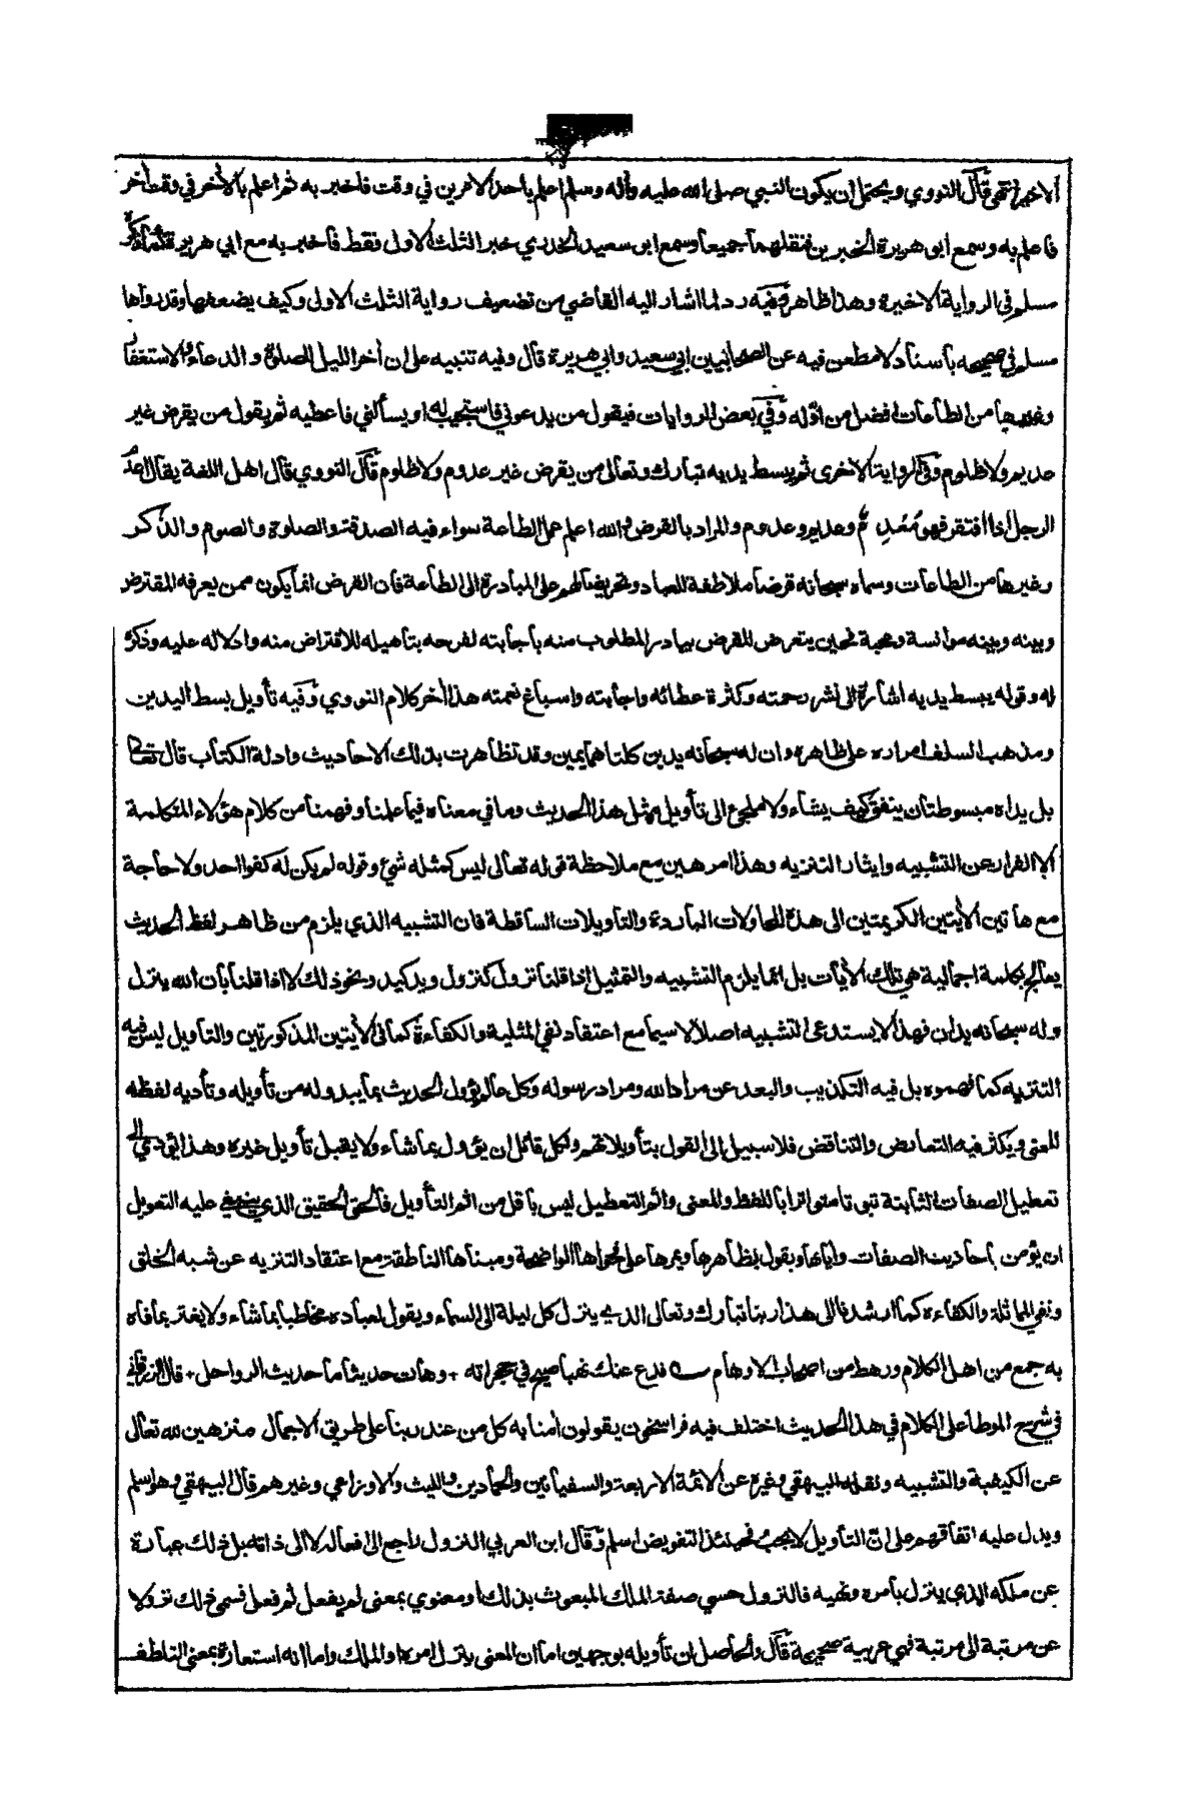 الاخير انتهى قال النووي ويحتمل ان يكون النبي صلى الله عليه وآله وسلم اعلم باحد الامرين في وقت فاخبر به ثم اعلم بالآخر في وقت آخر
فاعلم به وسمع ابو هريرة الخبرين فنقلهما جميعا وسمع ابو سعيد الخدري خبر الثلث الاول فقط فاخبر به مع ابي هريرة كما ذكره
مسلم في الرواية الاخيرة وهذا ظاهر وفيه رد لما اشار اليه القاضي من تضعيف رواية الثلث الاول وكيف يضعفها وقد رواها
مسلم في صحيحه باسناد لا مطعن فيه عن الصحابيين ابي سعيد وابي هريرة قال وفيه تنبيه على ان آخر الليل للصلوة والدعاء والاستغفار
وغيرها من الطاعات افضل من اوّله وفي بعض الروايات فيقول من يدعوني فاستجيب له او يسألني فاعطيه ثم يقول من يقرض غير
عديم ولا ظلوم وفي الرواية الاخرى ثم يبسط يديه تبارك وتعالى من يقرض غير عدوم ولا ظلوم قال النووي قال اهل اللغة يقال اعدم
الرجل اذا افتقر فهو مُعْدِم وعديم وعدوم والمراد بالقرض والله اعلم عمل الطاعة سواء فيه الصدقة والصلوة والصوم والذكر
وغيرها من الطاعات وسماه سبحانه قرضا ملاطفة للعباد وتحريضا لهم على المبادرة الى الطاعة فان القرض انما يكون ممن يعرفه المقترض
وبينه وبينه موانسة ومحبة فحين يتعرض للقرض يبادر المطلوب منه باجابته لفرحه بتأهيله للاقتراض منه وادلاله عليه وذكره
له وقوله يبسط يديه اشارة الى نشر رحمته وكثرة عطائه واجابته واسباغ نعمته هذا آخر كلام النووي وفيه تأويل بسط اليدين
ومذهب السلف امراره على ظاهره وان له سبحانه يدين كلتاهما يمين وقد تظاهرت بذلك الاحاديث وادلة الكتاب قال تعالى
بل يداه مبسوطتان ينفق كيف يشاء ولا ملجئ الى تأويل مثل هذا الحديث وما في معناه فيما علمنا وفهمنا من كلام هؤلاء المتكلمة
الا الفرار عن التشبيه وايثار التنزيه وهذا امر هين مع ملاحظة قوله تعالى ليس كمثله شئ وقوله لم يكن له كفوا احد ولا حاجة
مع هاتين الآيتين الكريمتين الى هذه المحاولات الباردة والتأويلات الساقطة فان التشبيه الذي يلزم من ظاهر لفظ الحديث
يعالج بكلمة اجمالية هي تلك الآيات بل انما يلزم التشبيه والتمثيل اذا قلنا نزول كنزول ويد كيد ونحو ذلك لا اذا قلنا بأن الله ينزل
وله سبحانه يدان فهذا لا يستدعي التشبيه اصلا لا سيما مع اعتقاد نفي المثلية والكفاءة كما في الآيتين المذكورتين والتأويل ليس فيه
التنزيه كما فهموه بل فيه التكذيب والبعد عن مراد الله ومراد رسوله وكل حال يؤول الحديث بما يبدو له من تأويله وتأديه لفظه
للمعنى ويكثر فيه التعارض والتناقض فلا سبيل الى القول بتأويلاتهم ولكل قائل ان يؤول بما شاء ولا يقبل تأويل غيره وهذا يؤدي الى
تعطيل الصفات الثابتة واثم التعطيل ليس باقل من اثم التأويل فالحق الحقيق الذي ينبغي عليه التعويل
ان يؤمن باحاديث الصفات وآياتها ويقول بظاهرها ويمرها على فحواها الواضحة ومبناها الناطقة مع اعتقاد التنزيه عن شبه الخلق
ونفي المماثلة والكفاءة كما ارشدنا الى هذا ربنا تبارك وتعالى الذي ينزل كل ليلة الى السماء ويقول لعباده مخاطبا بما شاء ولا يغتر بما فاه
به جمع من اهل الكلام ورهط من اصحاب الاوهام ـ فدع عنك نهبا صيح في حجراته + وهات حديثا ما حديث الرواحل + قال الزرقاني
في شرح الموطأ على الكلام في هذا الحديث اختلف فيه فراسخون يقولون آمنا به كل من عند ربنا على طريق الاجمال منزهين لله تعالى
عن الكيفية والتشبيه ونقله البيهقي وغيره عن الائمة الاربعة والسفيانين والحمادين والليث والاوزاعي وغيرهم قال البيهقي وهو اسلم
ويدل عليه اتفاقهم على انّ التأويل لا يجب فحينئذ التفويض اسلم وقال ابن العربي النزول راجع الى افعاله لا الى ذاته بل ذلك عبارة
عن ملكه الذي ينزل بأمره ونهيه فالنزول حسي صفة الملك المبعوث بذلك او معنوي بمعنى لم يفعل ثم فعل فسمى ذلك نزولا
عن مرتبة الى مرتبة فهي عربية صحيحة قال والحاصل ان تأويله بوجهين اما ان المعنى ينزل امره او الملك واما انه استعارة بمعنى التلطف